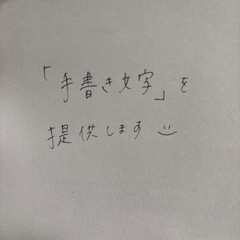 「手書き文字」を
提供します